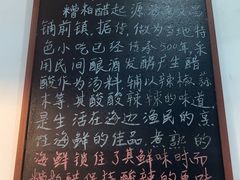 糟粕醋起源
铺前镇，据传，做为当地特
色小吃已经传承500年，采
用民间酿酒发酵产生醋
酸作为汤料，辅以辣椒蒜
末等，其酸酸辣辣的味道，
是生活在海边渔民的享
性海鲜的佳品，煮熟的
海鲜锁住了其鲜味时而